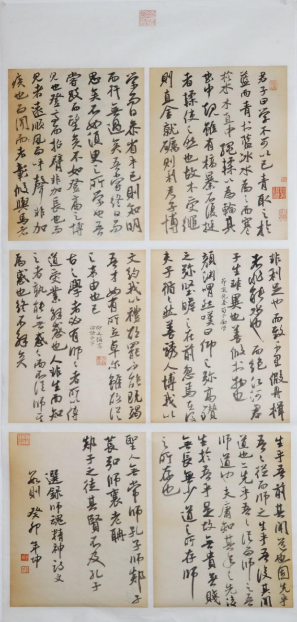 君子曰學不可以已青取之於
藍而青於藍冰水為之而寒
於水木直中繩輮以為輪其
曲中規雖有槁暴不復挺
者輮使之然也故木受繩
則直金就礪則利君子博
學而日參省乎己則知明
而行無過矣吾嘗終日而
思矣不如須臾之所學也吾
嘗跂而望矣不如登高之博
見也登高而招臂非加長也而
見者遠順風而呼聲非加
疾也而聞者彰假輿馬者
非利足也而致千里假舟楫
者非能水也而絕江河君
子生非異也善假於物也
顏淵喟然歎曰仰之彌高鑽
之彌堅瞻之在前忽焉在後
夫子循循然善誘人博我以
文約我以禮欲罷不能既竭
吾才如有所立卓爾雖欲從
之末由也已
古之學者必有師師者所以傳
道受業解惑也人非生而知
之者孰能無惑惑而不從師其
為惑也終不解矣
生乎吾前其聞道也固先乎
吾吾從而師之生乎吾後其聞
道也亦先乎吾吾從而師之吾
師道也夫庸知其年之先後
生於吾乎是故無貴無賤
無長無少道之所存師
之所存也
聖人無常師孔子師郯子
萇弘師襄老聃
郯子之徒其賢不及孔子
選錄師魂精神詩文
癸卯年坤